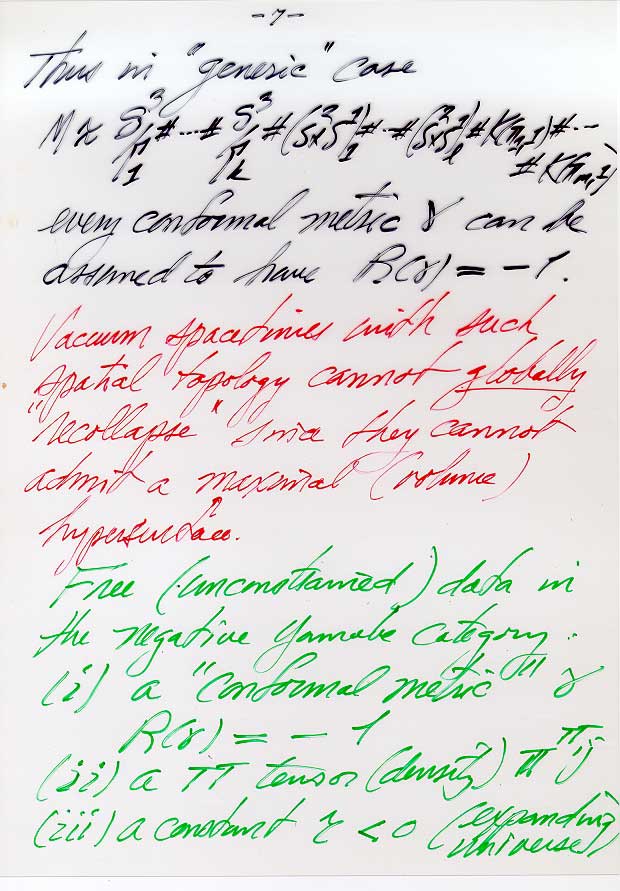 -7-
Thus in "generic" case
M ≈ S³/Γ₁ # ... # S³/Γₖ # (S²×S¹)₁ # ... # (S²×S¹)ₗ # K(π₁,1) # ...
# K(πₘ,1)
every conformal metric γ can be
assumed to have R(γ) = -1.
Vacuum spacetimes with such
spatial topology cannot globally
"recollapse" since they cannot
admit a maximal (volume)
hypersurface.
Free (unconstrained) data in
the negative Yamabe category:
(i) a "conformal metric" γ
R(γ) = - 1
(ii) a TT tensor (density) π^{TT ij}
(iii) a constant τ < 0 (expanding
universe)